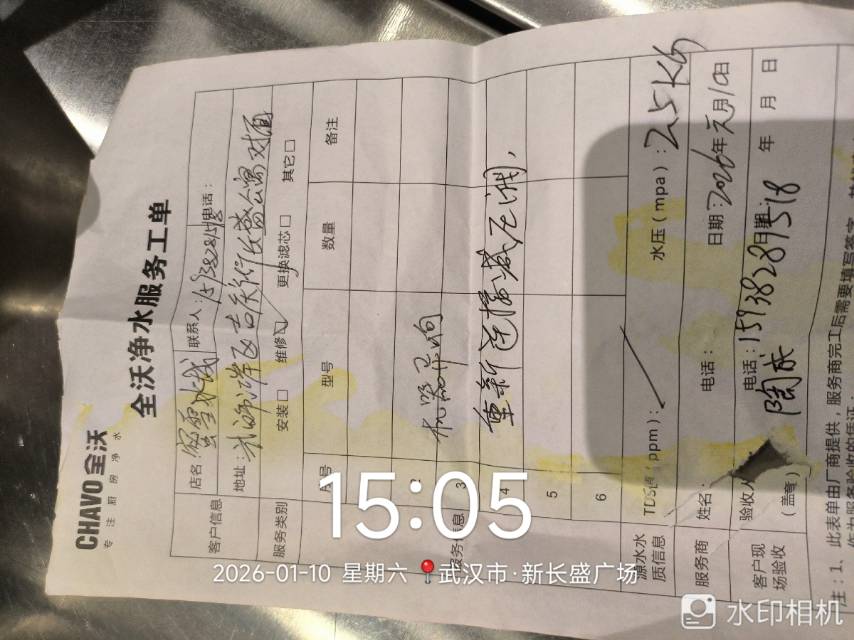 CHAVO全沃
专注厨房净水
全沃净水服务工单
客户信息
店名：蜜雪冰城
联系人：15938281518
电话：
地址：
服务类别
安装□ 维修☑ 更换滤芯□ 其它□
型号
数量
备注
2
3
机器异响
4
重新连接减压阀，
5
6
源水水质信息
水压（mpa）：2.5KG
服务商
姓名：
电话：
日期：2026年元月10日
客户现场验收
陶成
电话：15938281518
年 月 日
（盖章）
注：1、此表单由厂商提供，服务商完工后需要填写签字
作为服务验收的凭证；
15:05
2026-01-10 星期六 武汉市·新长盛广场
水印相机